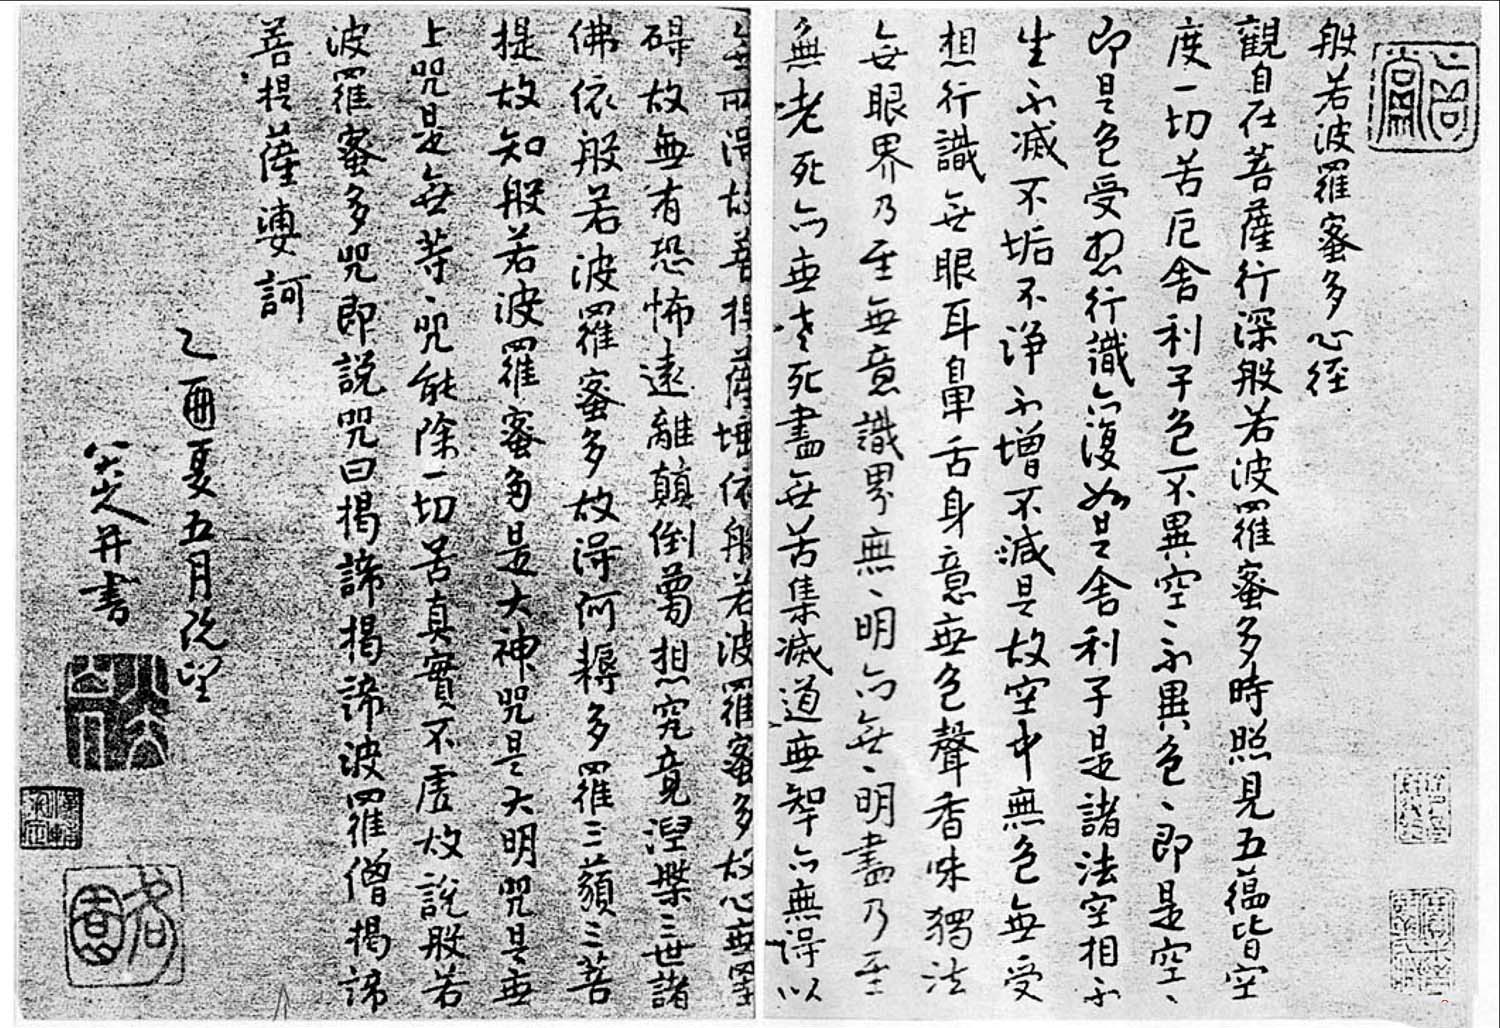 般若波羅蜜多心经
觀自在菩薩行深般若波羅蜜多時照見五蕴皆空
度一切苦厄舍利子色不異空、不異色、即是空、
即是色受想行識亦復如是舍利子是諸法空相不
生不滅不垢不净不增不減是故空中無色無受
想行識無眼耳鼻舌身意無色聲香味獨法
無眼界乃至無意識界無、明亦無、明盡乃至
無老死亦無老死盡無苦集滅道無智亦無得以
無所得故菩提薩埵依般若波羅蜜多故心無罣
碍故無有恐怖遠離顛倒夢想究竟涅槃三世諸
佛依般若波羅蜜多故得何耨多羅三藐三菩
提故知般若波羅蜜多是大神咒是大明咒是無
上咒是無等、咒能除一切苦真實不虛故說般若
波羅蜜多咒即說咒曰揭諦揭諦波羅僧揭諦
菩提薩婆訶
乙酉夏五月既望
八大人并書